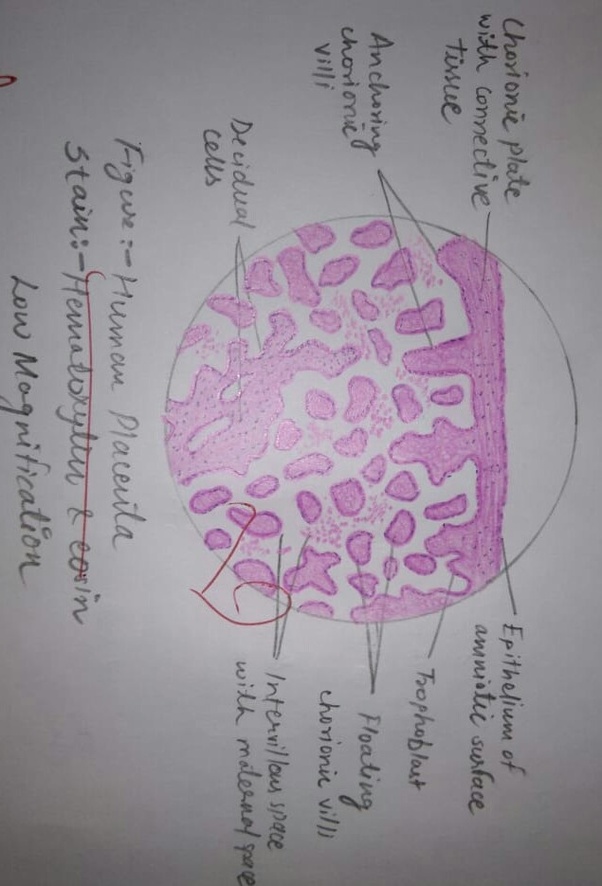 Chorionic plate
with connective
tissue
Anchoring
chorionic
villi
Decidual
cells
Epithelium of
amniotic surface
Trophoblast
Floating
chorionic villi
Intervillous space
with maternal space
Figure:- Human Placenta
Stain:- Hematoxylin & eosin
Low Magnification